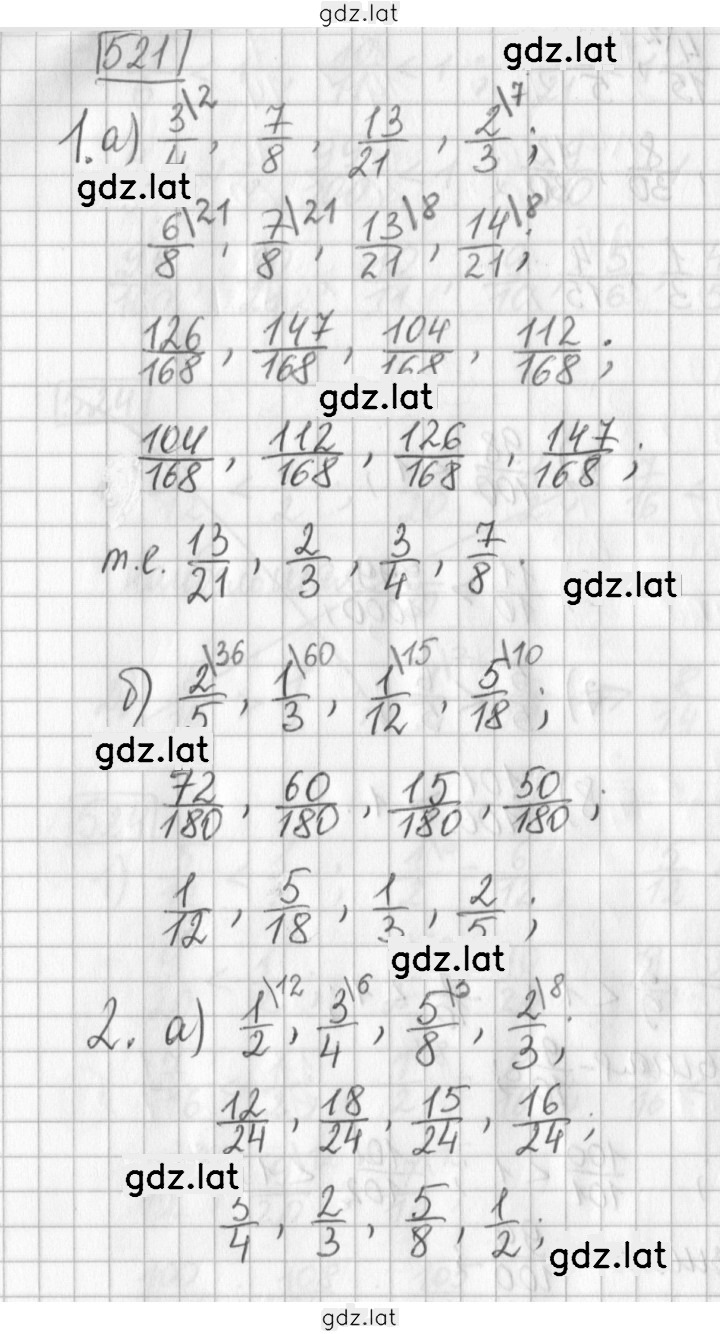 gdz.lat
521
gdz.lat
1. а) 3/4 \2, 7/8, 13/21, 2/3 \7;
gdz.lat
6/8 \21, 7/8 \21, 13/21 \8, 14/21 \8;
126/168, 147/168, 104/168, 112/168;
gdz.lat
104/168, 112/168, 126/168, 147/168;
т.е. 13/21, 2/3, 3/4, 7/8.
gdz.lat
б) 2/5 \36, 1/3 \60, 1/12 \15, 5/18 \10;
gdz.lat
72/180, 60/180, 15/180, 50/180;
1/12, 5/18, 1/3, 2/5;
gdz.lat
2. а) 1/2 \12, 3/4 \6, 5/8 \3, 2/3 \8;
12/24, 18/24, 15/24, 16/24;
gdz.lat
3/4, 2/3, 5/8, 1/2;
gdz.lat
gdz.lat